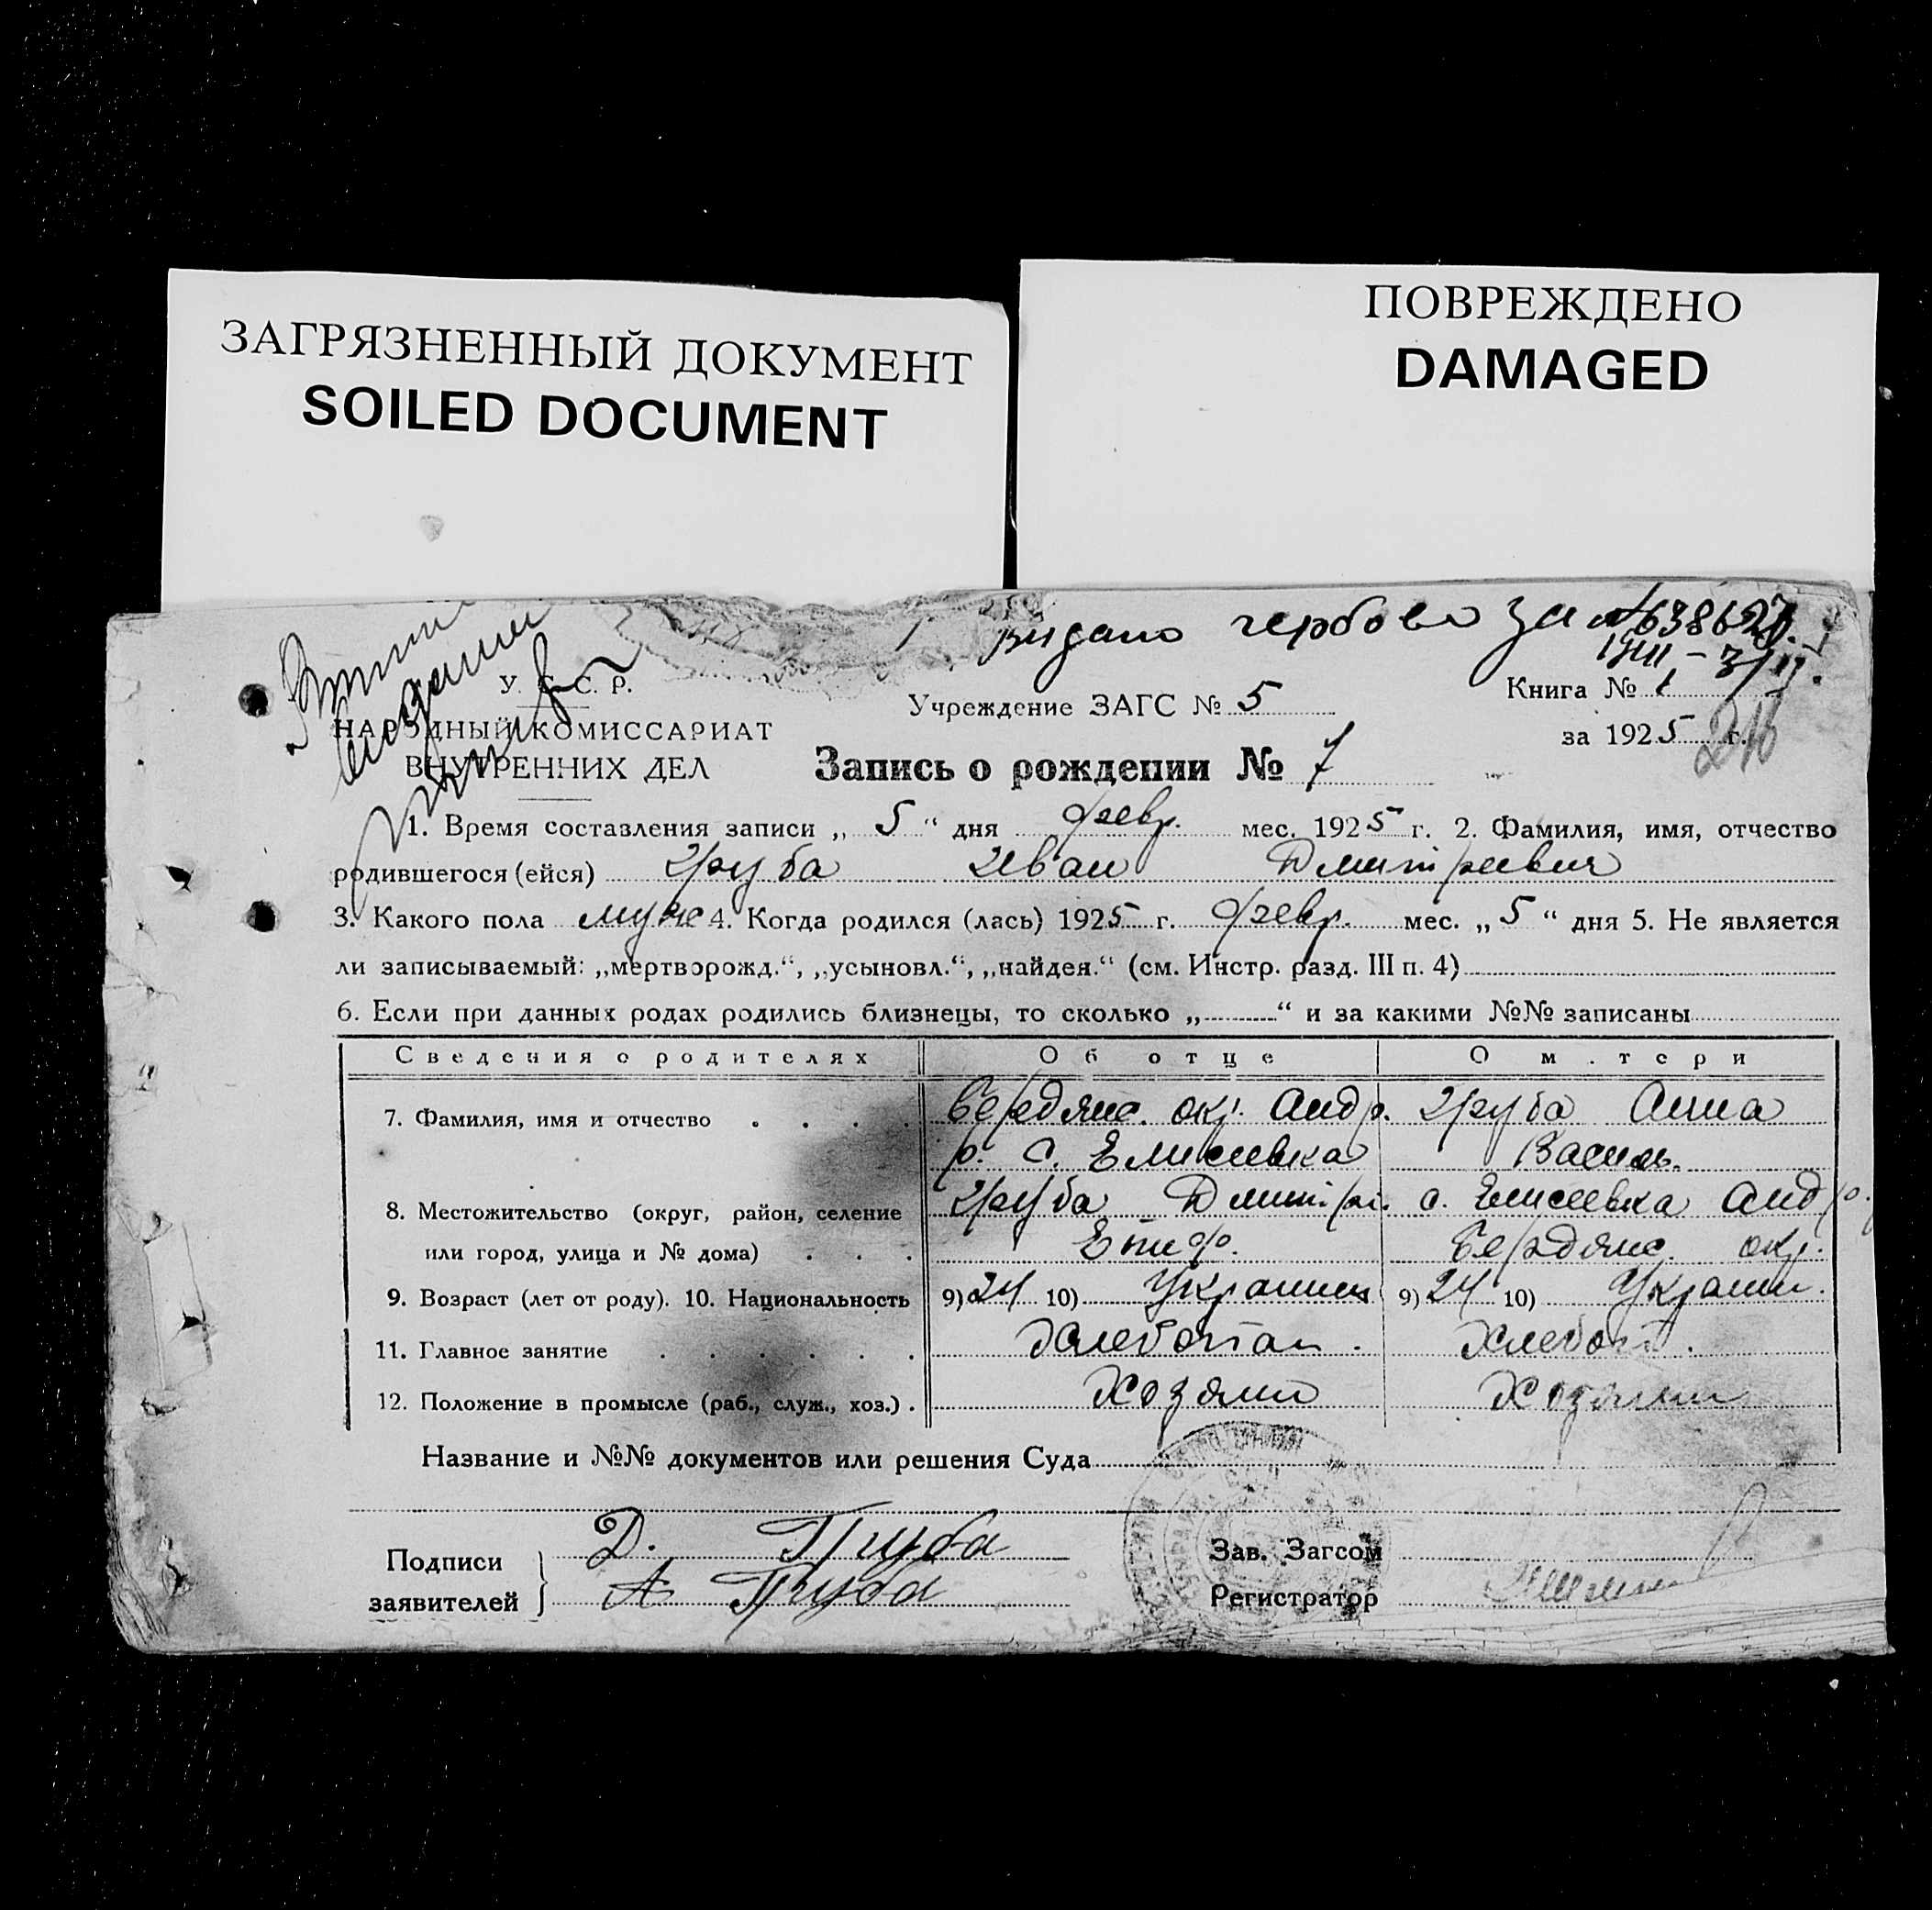 ЗАГРЯЗНЕННЫЙ ДОКУМЕНТ
SOILED DOCUMENT
ПОВРЕЖДЕНО
DAMAGED
видано гербове за № 638627
У. С. С. Р.
НАРОДНЫЙ КОМИССАРИАТ
ВНУТРЕННИХ ДЕЛ
Учреждение ЗАГС № 5
Книга № 1
за 1925 г.
Запись о рождении № 7
1. Время составления записи „ 5 “ дня февр. мес. 1925 г. 2. Фамилия, имя, отчество
родившегося (ейся) Груба Иван Дмитриевич
3. Какого пола муж 4. Когда родился (лась) 1925 г. февр. мес. „ 5 “ дня 5. Не является
ли записываемый: „мертворожд.“, „усыновл.“, „найден.“ (см. Инстр. разд. III п. 4)
6. Если при данных родах родились близнецы, то сколько „ “ и за какими №№ записаны
Сведения о родителях Об отце О м.тери
7. Фамилия, имя и отчество Бердянс. окр. Андр. Груба Анна
р. С. Елисеевка Василь.
8. Местожительство (округ, район, селение Груба Дмитри. с. Елисеевка Андр.
или город, улица и № дома) Епиф. Бердянс. окр.
9. Возраст (лет от роду). 10. Национальность 9) 24 10) Украинец 9) 24 10) Украин.
11. Главное занятие Хлебопаш. Хлебоп.
12. Положение в промысле (раб., служ., хоз.) . Хозяин Хозяин
Название и №№ документов или решения Суда
Подписи заявителей
Д. Груба
А Груба
Зав. Загсом
Регистратор